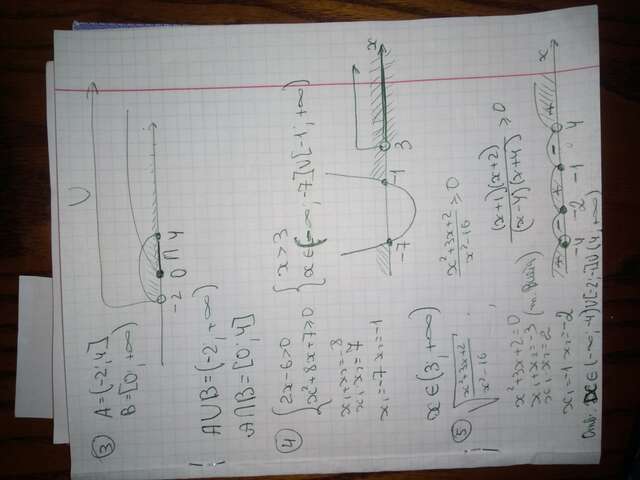 ③ A=(-2;4]
B=[0;+∞)
U
-2 0 ∩ 4
A∪B=(-2;+∞)
A∩B=[0;4]
④ {2x-6>0 {x>3
x²+8x+7≥0 x∈(-∞;-7]∪[-1;+∞)
x₁+x₂=-8
x₁x₂=7
x₁=-7 x₂=-1
-7 -1 3 x
x∈(3;+∞)
⑤ √(x²+3x+2)/(x²-16) ; (x²+3x+2)/(x²-16) ≥0
x²+3x+2=0
x₁+x₂=-3 (т. Виета)
x₁x₂=2
x₁=-1 x₂=-2
(x+1)(x+2)/(x-4)(x+4) ≥0
+ - + - + x
-4 -2 -1 4
Отв: x∈(-∞;-4)∪[-2;-1]∪(4;+∞)